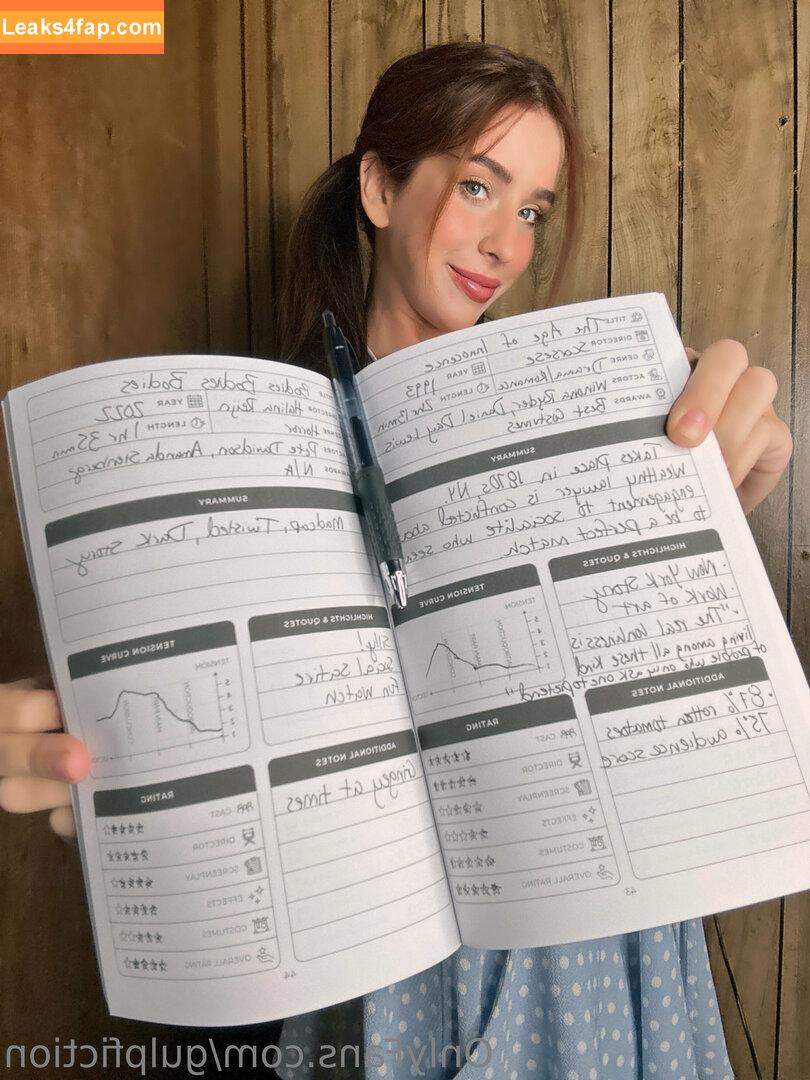 Leaks4fap.com
TITLE The Age of Innocence
DIRECTOR Scorsese YEAR 1993
GENRE Drama/Romance LENGTH
ACTORS Winona Ryder, Daniel Day Lewis
AWARDS Best Costumes
SUMMARY
Takes place in 1870s NY.
Wealthy lawyer is conflicted
engagement to socialite who
to be a perfect match.
HIGHLIGHTS & QUOTES
· New York Story
· Work of art
· "The real loneliness is
living among all these kind
of people who only ask one to pretend"
TENSION CURVE
TENSION
5
4
3
2
1
ADDITIONAL NOTES
· 81% rotten tomatoes
75% audience score
RATING
CAST
DIRECTOR
SCREENPLAY
EFFECTS
COSTUMES
OVERALL RATING
43
TITLE Bodies Bodies Bodies
DIRECTOR Halina Reijn YEAR 2022
GENRE Horror LENGTH 1hr 35min
ACTORS Pete Davidson, Amandla Stenberg
AWARDS N/A
SUMMARY
Madcap, Twisted, Dark Story
HIGHLIGHTS & QUOTES
Silly!
Social Satire
Fun watch
TENSION CURVE
TENSION
5
4
3
2
1
ADDITIONAL NOTES
Cringey at times
RATING
CAST
DIRECTOR
SCREENPLAY
EFFECTS
COSTUMES
OVERALL RATING
44
OnlyFans.com/gulpfiction